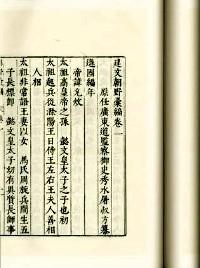 建文朝野彙編卷一
原任廣東道監察御史秀水屠叔方纂
遜國編年
帝諱允炆
太祖高皇帝之孫 懿文皇太子之子也初
太祖起兵從滁陽王日侍王左右王夫人善相
人相
太祖非常語王妻以女 馬氏周旋兵間生五
子長標即 懿文皇太子幼有異質長師事